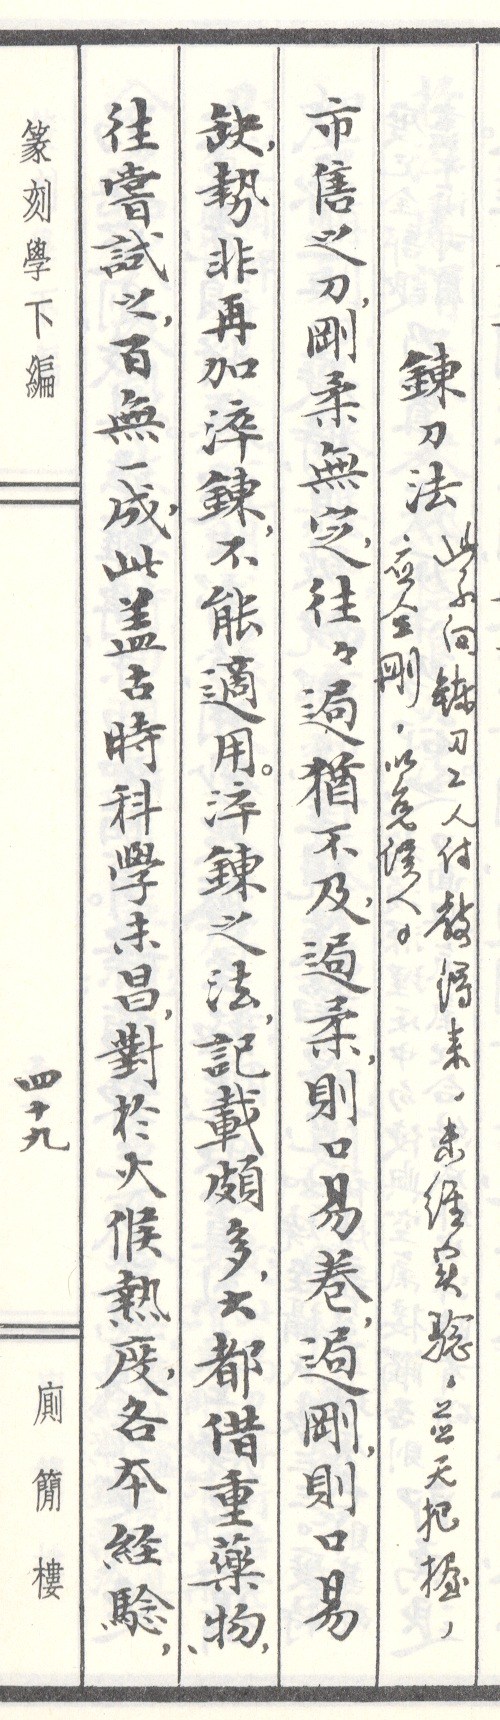 鍊刀法
此系向鍊刀工人付教得来，未經實驗，並无把握，
應全刪，以免誤人。
市售之刀，剛柔無定，往々過猶不及，過柔，則口易卷，過剛，則口易
缺，勢非再加淬鍊，不能適用。淬鍊之法，記載頗多，大都借重藥物，
往嘗試之，百無一成，此蓋古時科學未昌，對於火候熱度，各本經驗，
篆刻學下編
四十九
廁簡樓